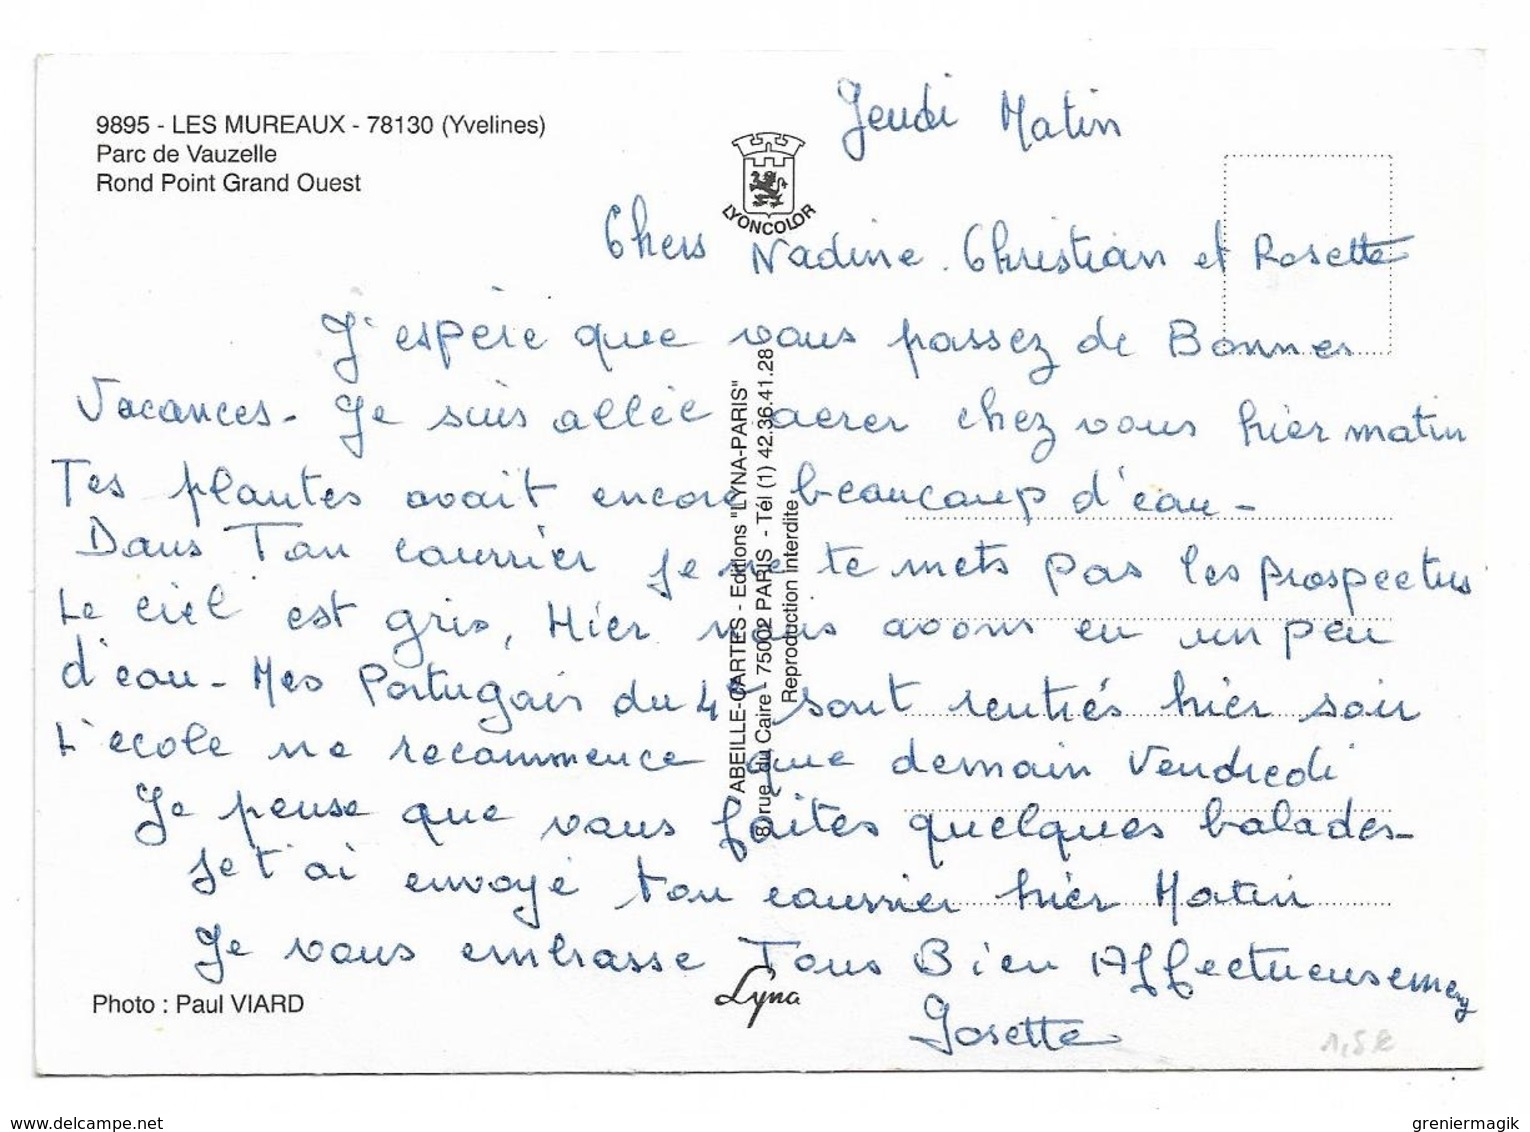 9895 - LES MUREAUX - 78130 (Yvelines)
Parc de Vauzelle
Rond Point Grand Ouest
LYONCOLOR
Jeudi Matin
Chers Nadine. Christian et Rosette
J'espère que vous passez de Bonnes
Vacances - Je suis allée aerer chez vous hier matin
Tes plantes avait encore beaucoup d'eau -
Dans Ton courrier je ne te mets pas les prospectus
Le ciel est gris, Hier nous avons eu un peu
d'eau - Mes Portugais du 4e sont rentrés hier soir
L'école ne recommence que demain Vendredi
Je pense que vous faites quelques balades -
Je t'ai envoyé ton courrier hier Matin
Je vous embrasse Tous Bien Affectueusement
Josette
ABEILLE-CARTES - Editions "LYNA-PARIS"
8, rue du Caire - 75002 PARIS - Tél (1) 42.36.41.28
Reproduction interdite
Photo : Paul VIARD
Lyna
1,5€
www.delcampe.net
greniermagik